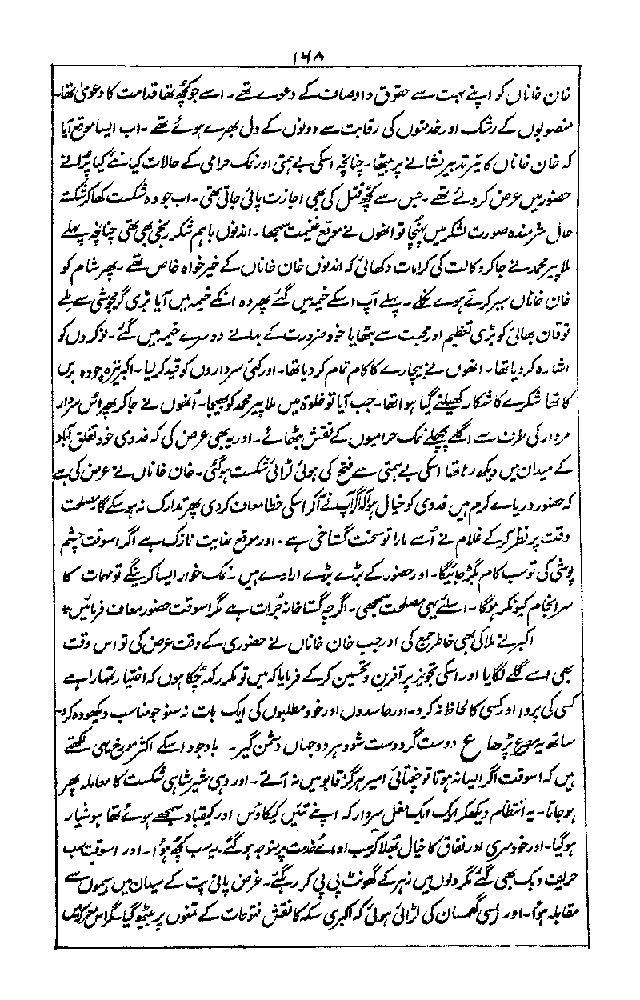 ۱۶۸
خان خاناں کو اپنے بہت سے حقوق و اوصاف کے دعوے تھے۔ اسے جو کچھ تھا قدامت کا دعویٰ تھا
منصوبوں کے رشک اور خدمتوں کی رقابت سے دونوں کے دل بھرے ہوئے تھے۔ اب ایسا موقع آیا
کہ خان خاناں کا تیر تدبیر نشانے پر بیٹھا۔ چنانچہ اسکی بے ہمتی اور نمک حرامی کے حالات کیا نئے کیا پرانے
حضور میں عرض کر دئے تھے۔ جس سے کچھ قتل کی بھی اجازت پائی جاتی تھی۔ اب جو وہ شکست کھا کر شکستہ
حال شرمندہ صورت لشکر میں پہنچا تو انھوں نے موقع غنیمت سمجھا۔ ان دنوں باہم شکر رنجی بھی تھی چنانچہ پہلے
ملا پیر محمد نے جا کر وکالت کی کرامات دکھائی کہ ان دنوں خان خاناں کے خیر خواہ خاص تھے۔ پھر شام کو
خان خاناں سیر کرتے ہوے نکلے۔ پہلے آپ اسکے خیمہ میں گئے پھر وہ انکے خیمہ میں آیا بڑی گرمجوشی سے ملے
توقان بھائی کو بڑی تعظیم اور محبت سے بٹھایا خود ضرورت کے بہانے دوسرے خیمہ میں گئے۔ نوکروں کو
اشارہ کر دیا تھا۔ انھوں نے بیچارے کا کام تمام کر دیا تھا۔ اور کئی سرداروں کو قید کر لیا۔ اکبر تیرہ چودہ برس
کا تھا شکرے کا شکار کھیلنے گیا ہوا تھا۔ جب آیا تو خلوت میں ملا پیر محمد کو بھیجا۔ اُنھوں نے جا کر پھر اس سردار
مردار کی طرف سے اگلے پچھلے نمک حرامیوں کے نقش بٹھائے۔ اور یہ بھی عرض کی کہ فدوی خود تغلق آباد
کے میدان میں دیکھ رہا تھا اسکی بے ہمتی سے فتح کی ہوئی لڑائی شکست ہو گئی۔ خان خاناں نے عرض کی ہے
کہ حضور دریاے کرم ہیں فدوی کو خیال ہوا کہ اگر آپ نے آکر اسکی خطا معاف کر دی پھر تدارک نہ ہو سکے گا مصلحت
وقت پر نظر کر کے غلام نے اُسے مارا تو سخت گستاخی ہے۔ اور موقع نہایت نازک ہے اگر اسوقت چشم
پوشی کی تو سب کام بگڑ جائیگا۔ اور حضور کے بڑے بڑے ارادے ہیں۔ نمک خوار ایسا کرینگے تو مہمات کا
سرانجام کیونکر ہوگا۔ اسلئے یہی مصلحت سمجھی۔ اگرچہ گستاخانہ جرات ہے مگر اسوقت حضور معاف فرمائیں ؞
اکبر نے ملا کی بھی خاطر جمع کی اور جب خان خاناں نے حضوری کے وقت عرض کی تو اس وقت
بھی اسے گلے لگایا اور اسکی تجویز پر آفرین و تحسین کر کے فرمایا کہ میں تو مکرر کہہ چکا ہوں کہ اختیار تمہارا ہے
کسی کی پروا اور کسی کا لحاظ نہ کرو۔ اور حاسدوں اور خود مطلبوں کی ایک بات نہ سنو جو مناسب دیکھو وہ کرو
ساتھ یہ مصرع پڑھا ع دوست گر دوست شود ہر دو جہاں دشمن گیر۔ باوجود اسکے اکثر مورخ یہی لکھتے
ہیں کہ اسوقت اگر ایسا نہ ہوتا تو چغتائی امیر ہرگز قابو میں نہ آتے۔ اور وہی شیر شاہی شکست کا معاملہ پھر
ہو جاتا۔ یہ انتظام دیکھکر ایک ایک مغل سردار کہ اپنے تئیں کیکاؤس اور کیقباد سمجھے ہوے تھا ہوشیار
ہو گیا۔ اور خود سری اور نفاق کا خیال بھلا کر سب اداے خدمت پر متوجہ ہو گئے۔ یہ سب کچھ ہوا۔ اور اسوقت سب
حریف دبک بھی گئے مگر دلوں میں زہر کے گھونٹ پی پی کر رہ گئے۔ غرض پانی پت کے میدان میں ہیموں سے
مقابلہ ہوا۔ اور ایسی گھمسان کی لڑائی ہوئی کہ اکبری سکہ کا نقش فتوحات کے تمغوں پر بیٹھ گیا۔ مگر اس معرکہ میں